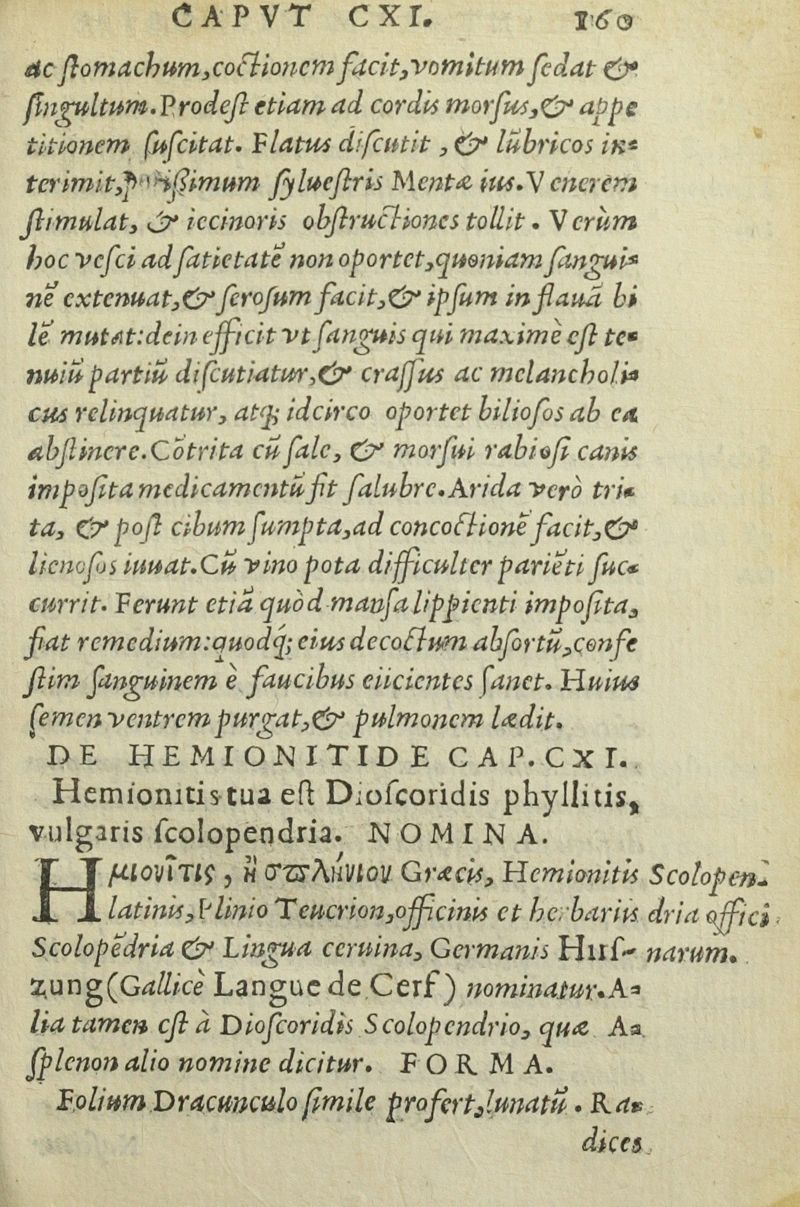 CAPVT CXI. 160
ac ſtomachum,coctionem facit,vomitum ſedat &
ſingultum.Prodeſt etiam ad cordis morſus,& appe
titionem ſuſcitat. Flatus diſcutit , & lūbricos in-
terimit, ſylueſtris Mentæ ius.Venerem
ſtimulat, & iecinoris obſtructiones tollit . Verùm
hoc veſci ad ſatietatē non oportet,quoniam ſangui-
nē extenuat,& ſeroſum facit,& ipſum in flauā bi
lē mutat:dein efficit vt ſanguis qui maximè eſt te-
nuiū partiū diſcutiatur,& craſſus ac melancholi-
cus relinquatur, atq; idcirco oportet bilioſos ab ea
abſtinere.Cōtrita cū ſale, & morſui rabioſi canis
impoſita medicamentū fit ſalubre.Arida verò tri-
ta, & poſt cibum ſumpta,ad concoctionē facit,&
lienoſos iuuat.Cū vino pota difficulter pariēti ſuc-
currit. Ferunt etiā quòd manſa lippienti impoſita,
fiat remedium:quodq́; eius decoctum abſortū,confe
ſtim ſanguinem è faucibus eiicientes ſanet. Huius
ſemen ventrem purgat,& pulmonem lædit.
DE HEMIONITIDE CAP.CXI.
Hemionitis tua eſt Dioſcoridis phyllitis,
vulgaris ſcolopendria. NOMINA.
Ημιονῖτις , ἢ σπλήνιον Græcis, Hemionitis Scolopen-
latinis,Plinio Teucrion,officinis et herbariis dria offici
Scolopēdria & Lingua ceruina, Germanis Hirſ- narum.
zung(Gallicè Langue de Cerf) nominatur.A-
lia tamen eſt à Dioſcoridis Scolopendrio, quæ A-
ſplenon alio nomine dicitur. FORMA.
Folium Dracunculo ſimile profert,lunatū . Ra-
dices